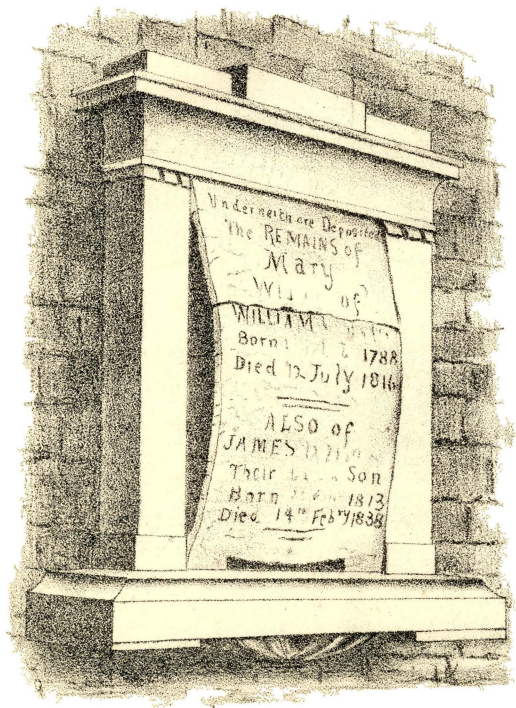 Underneith are Deposited
The REMAINS of
Mary
of
WILLIAM
Born 1788
Died 12 July 1816
ALSO of
JAMES
Their Son
Born 1813
Died 14th Febry 1838